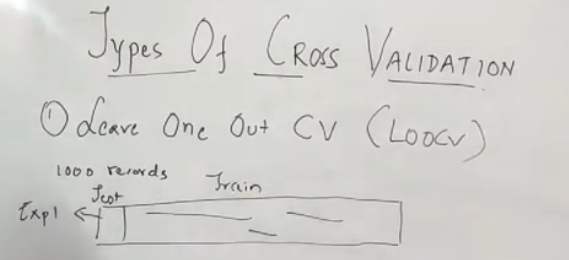 Types Of CROSS VALIDATION
① Leave One Out CV (LOOCV)
1000 records
Test Train
Exp1